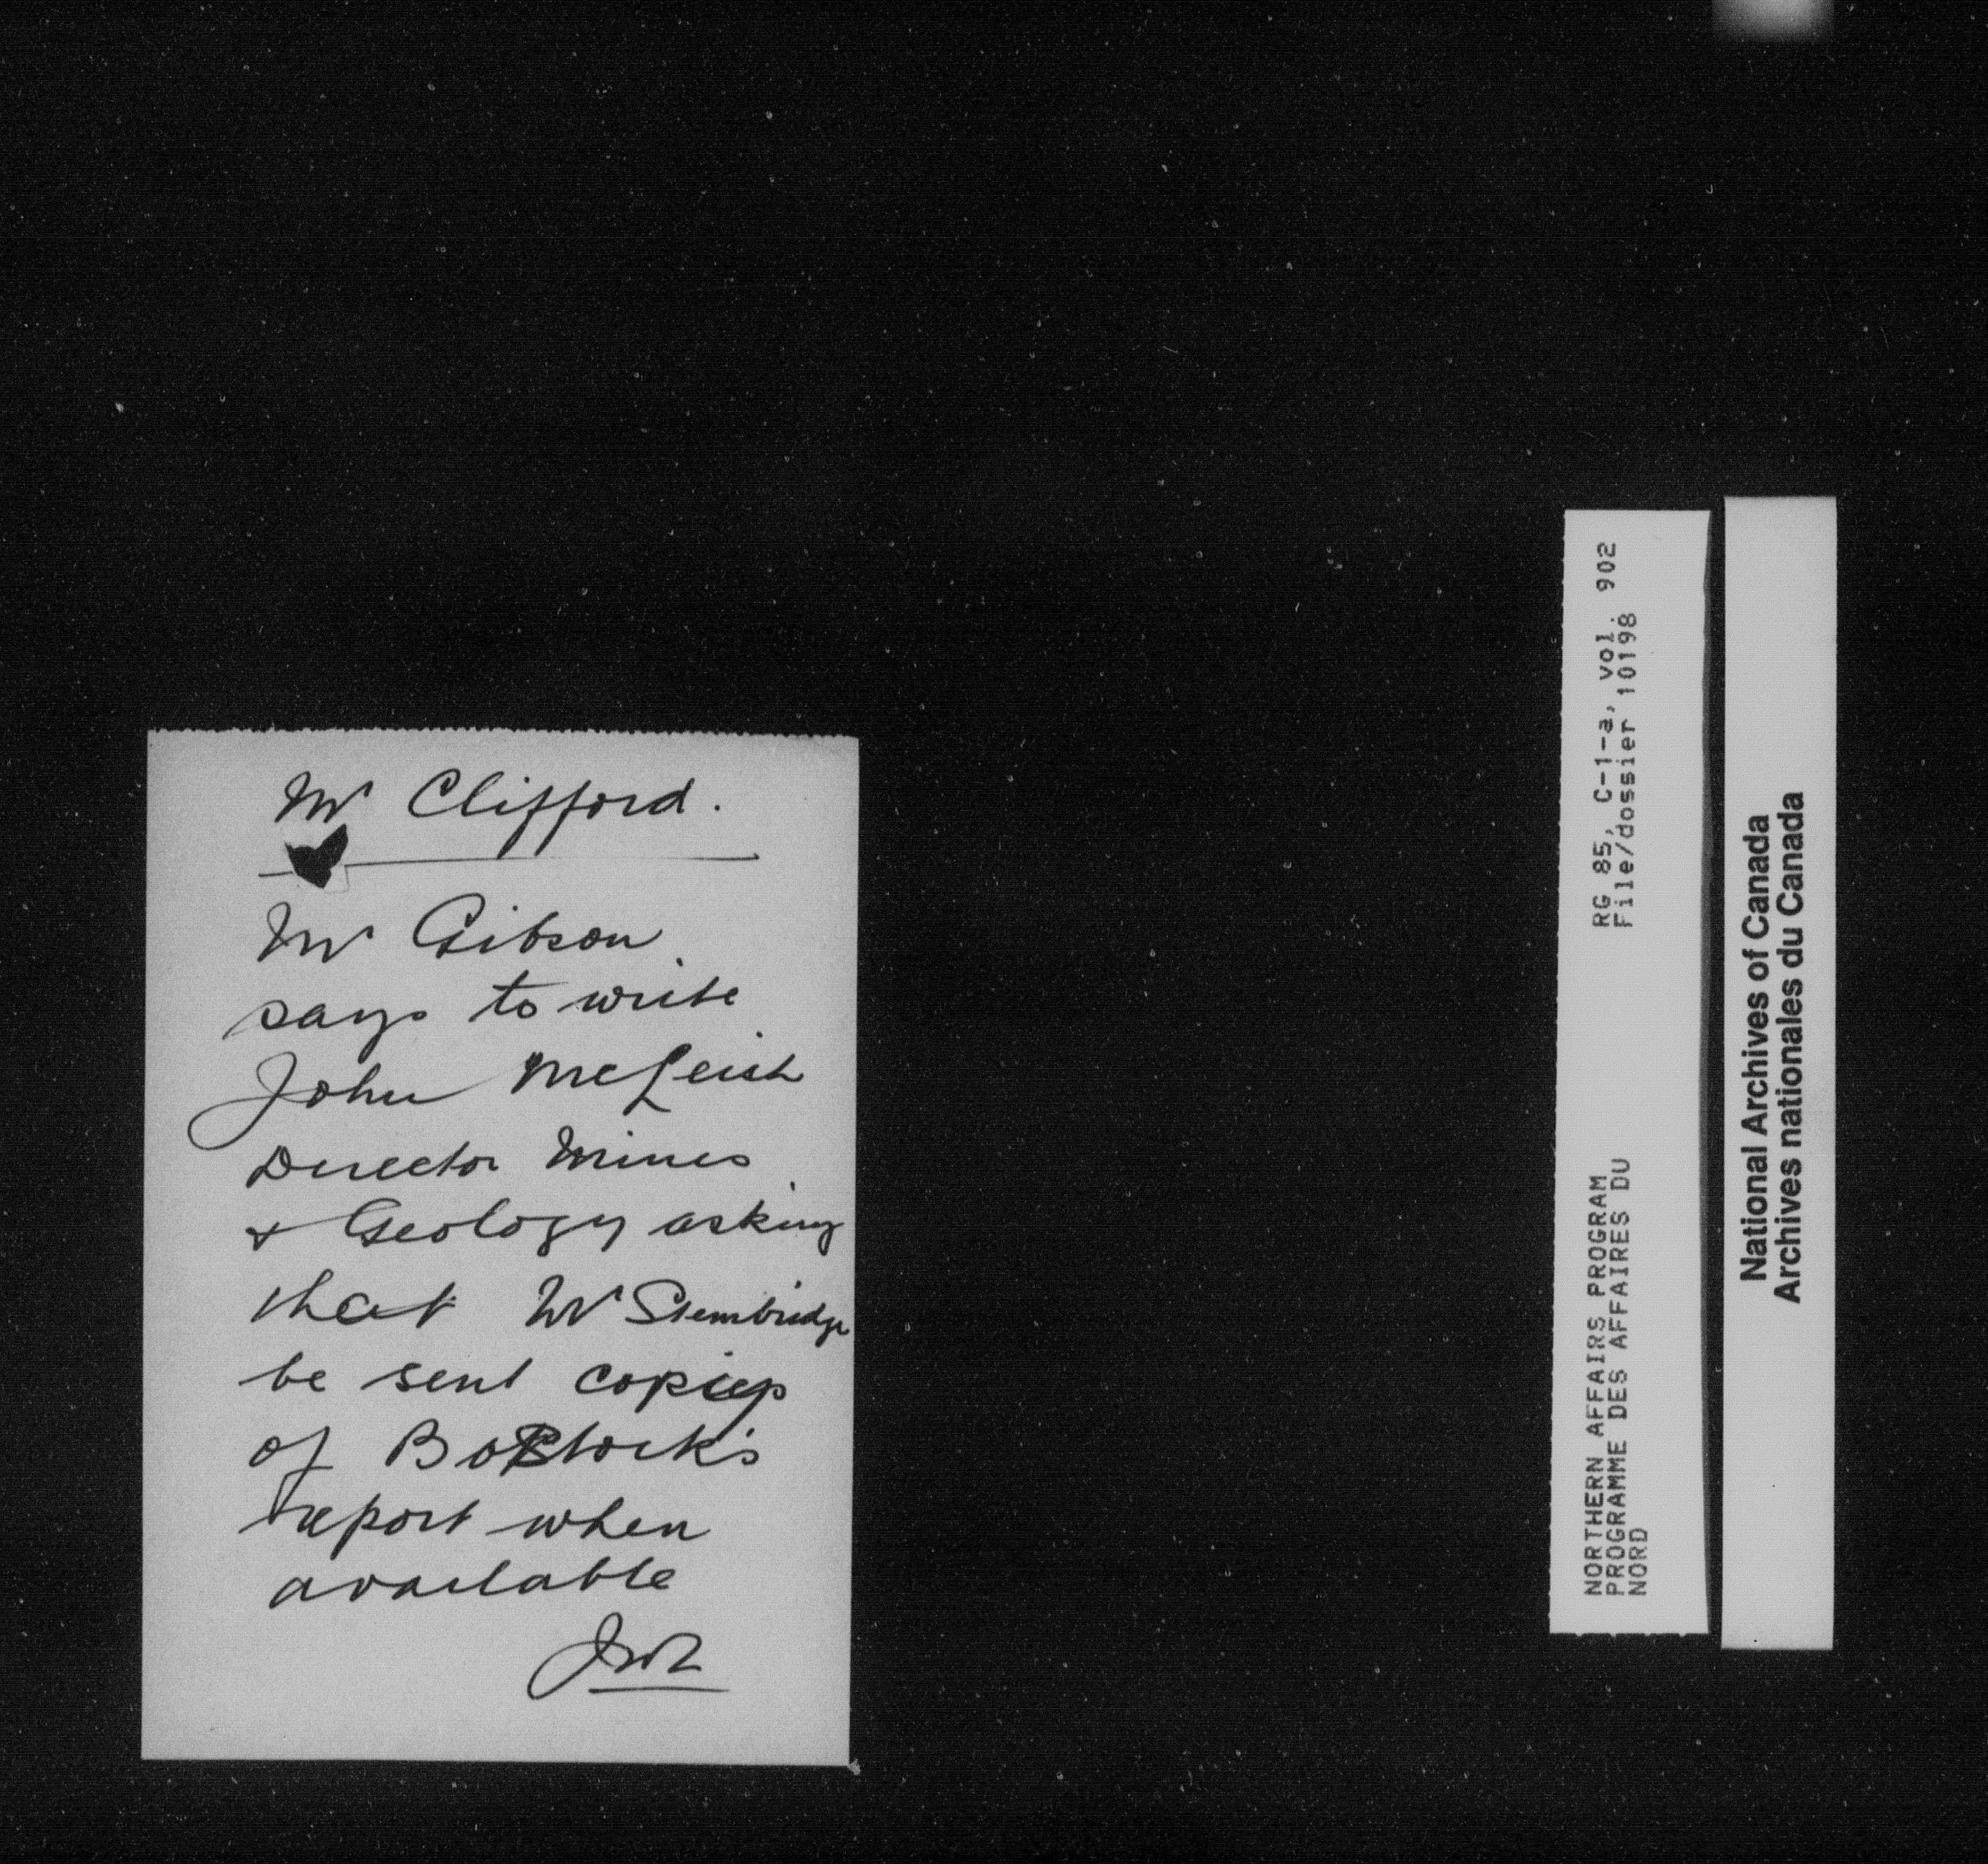 Mr Clifford.
Mr Gibson
says to write
John McLeish
Director Mines
& Geology asking
that Mr Stembridge
be sent copies
of Bostock's
report when
available
RG 85, C-1-a, vol. 902
File/dossier 10198
NORTHERN AFFAIRS PROGRAM
PROGRAMME DES AFFAIRES DU
NORD
National Archives of Canada
Archives nationales du Canada